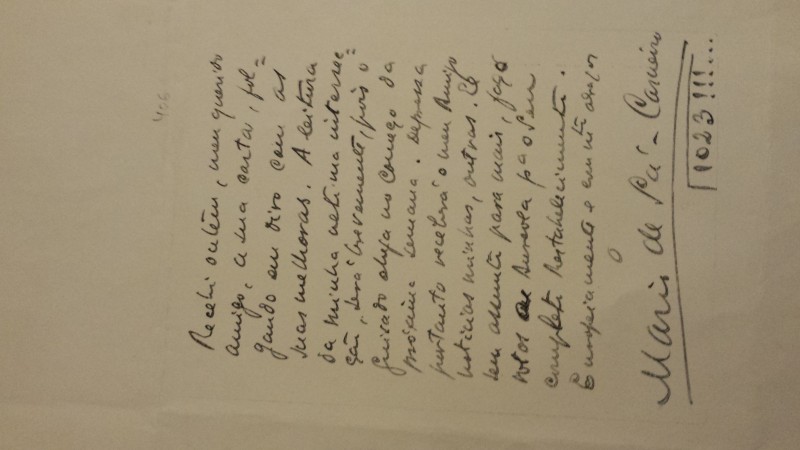 Recebi ontem, meu querido
amigo, a sua carta, fol=
gando em        com as
suas melhoras. A leitura
da minha            intersec=
ção, será brevemente, pois o
Guisado chega no começo da
próxima semana. Depressa
portanto receberá o meu Amigo
notícias minhas, outras. E
sem assunto para mais, faço
votos de       pª o seu
completo restabelecimento.
               e            abraços
O
Mario de Sá-Carneiro
1023!!!...
406